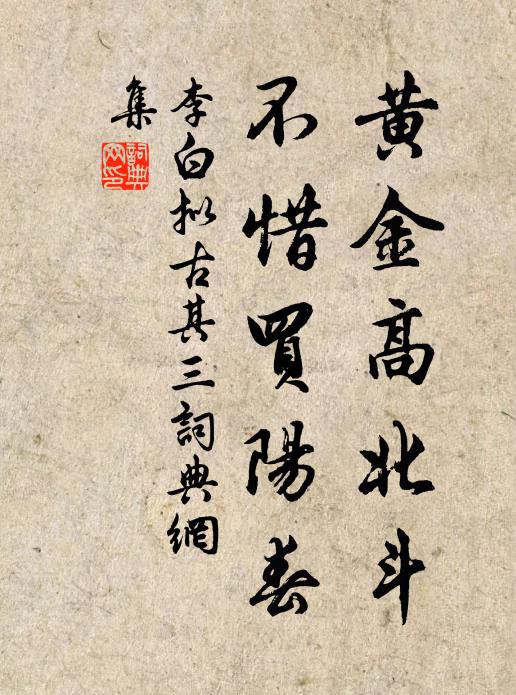 黃金高北斗
不惜買陽春
李白拟古其三詞典網
集
詞典
网印